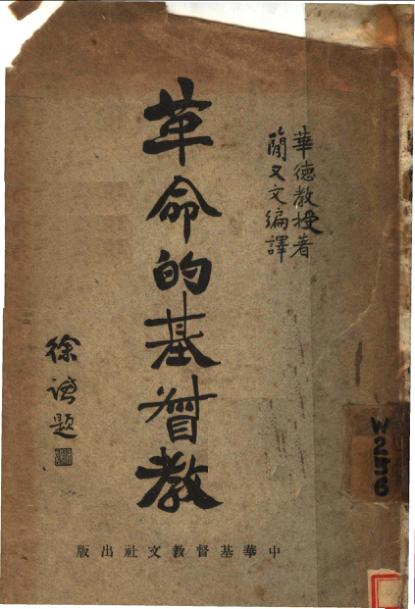 華德教授著
簡又文編譯
革命的基督教
徐謙題
中華基督教文社出版
W256